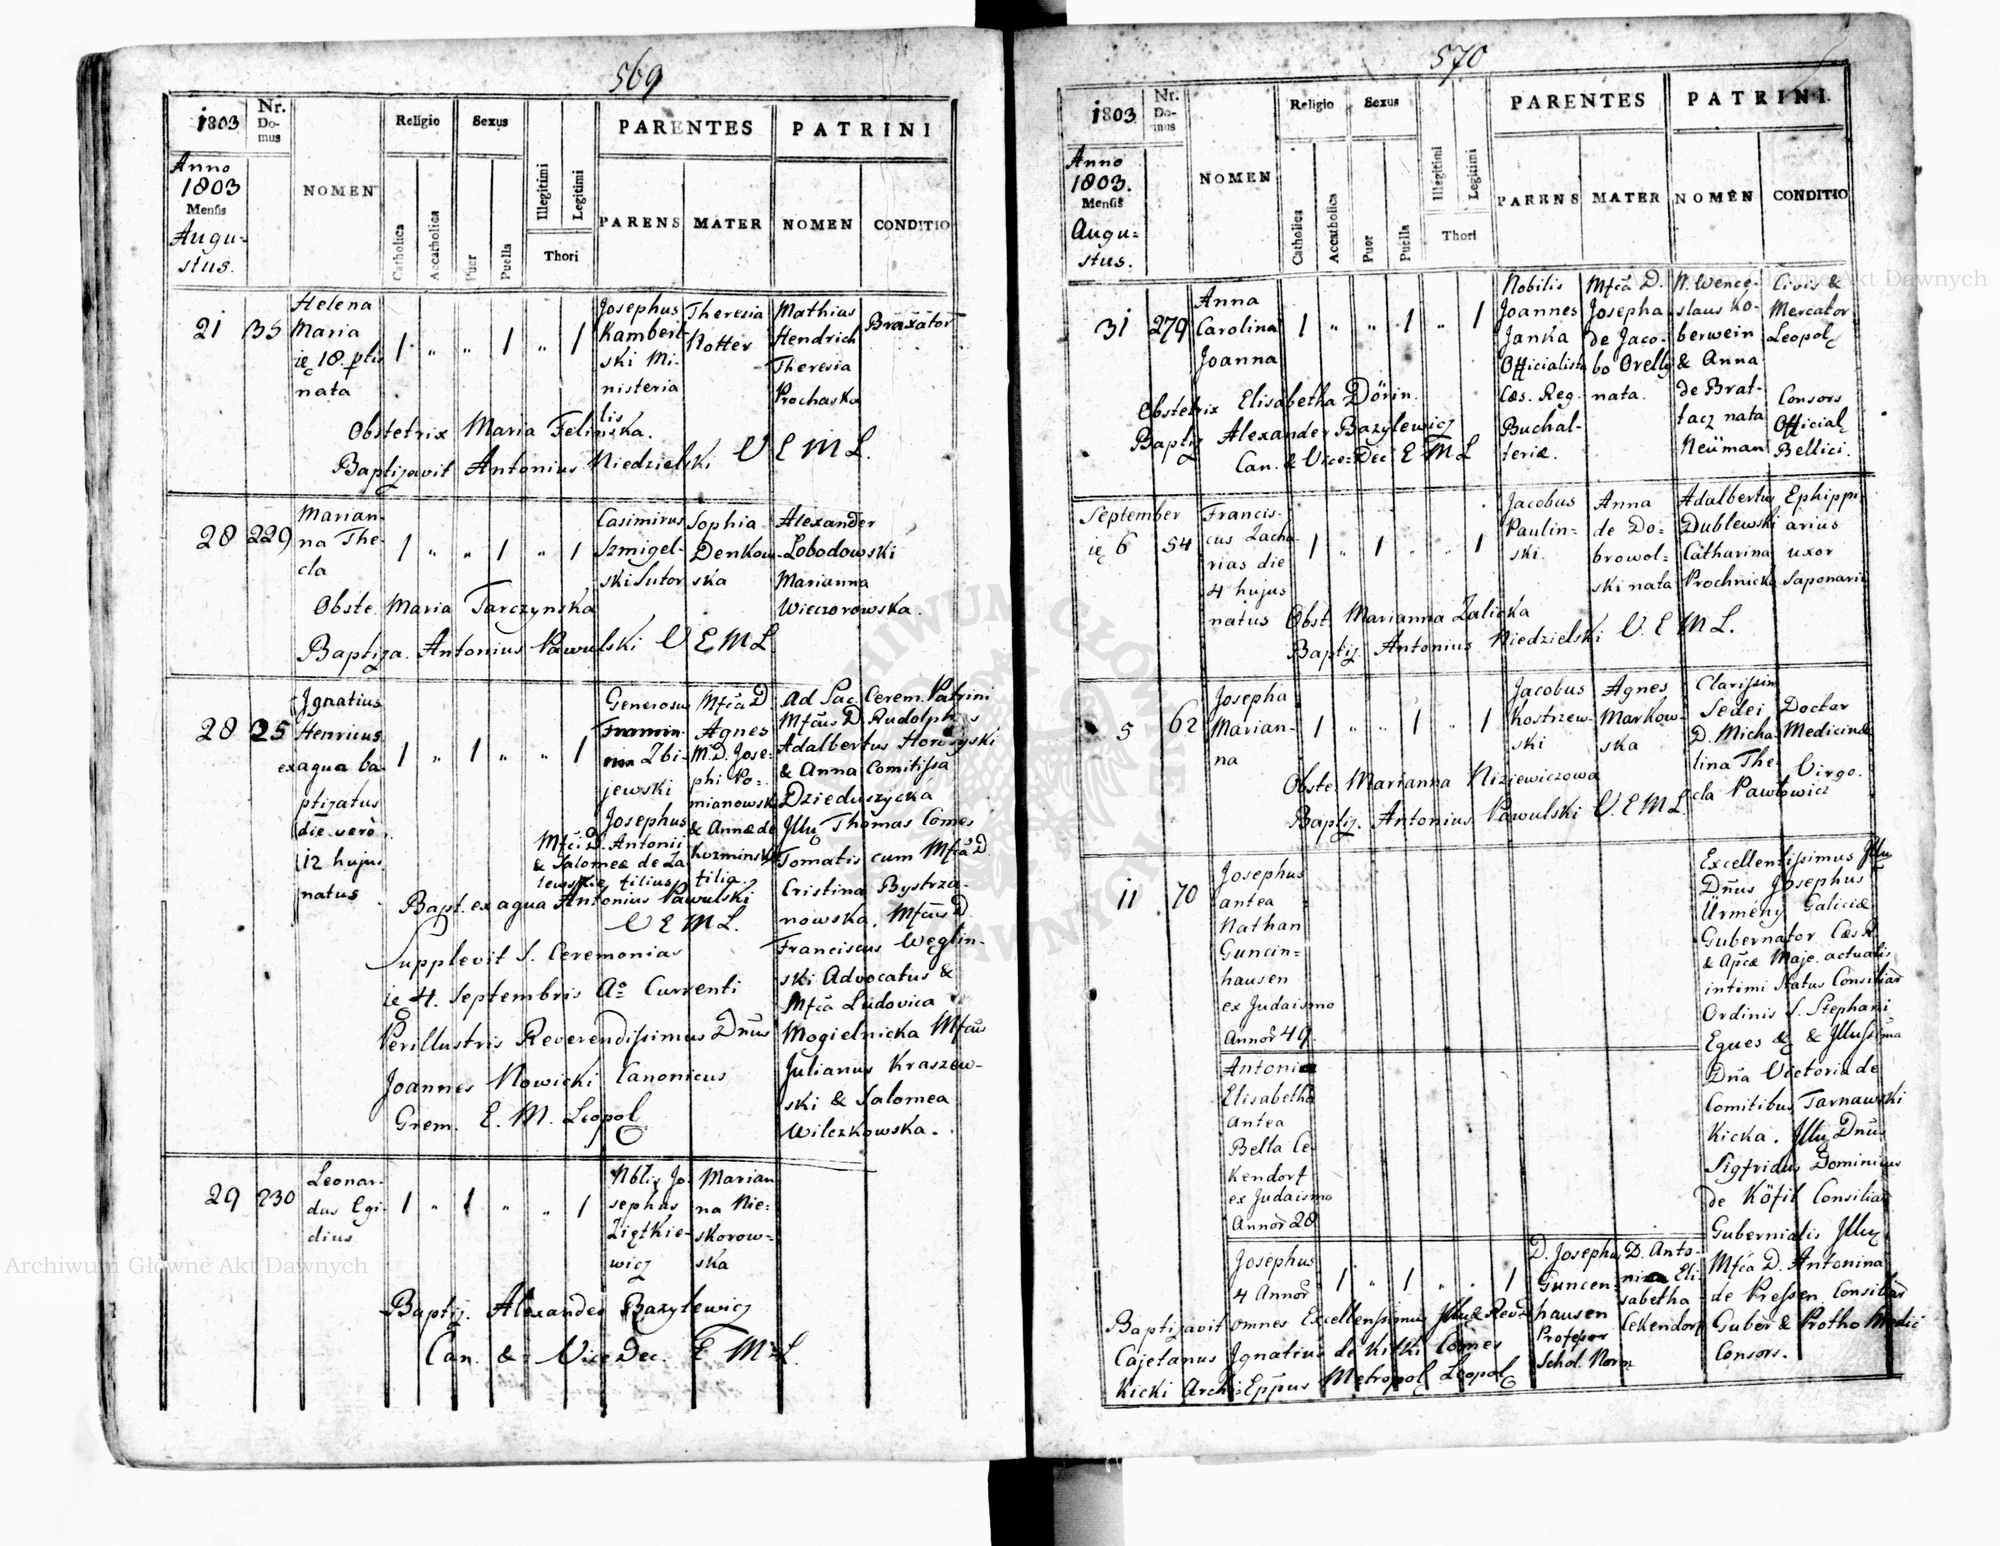 569
1803
Nr. Domus
NOMEN
Religio
Sexus
Illegitimi
Legitimi
PARENTES
PATRINI
Anno
1803
Mensis
Augu-
stus.
Catholica
Accatholica
Puer
Puella
Thori
PARENS
MATER
NOMEN
CONDITIO
21
35
Helena
Maria
ię 18. ptis
nata
1 " " 1 " 1
Josephus
Kambert
ski Mi-
nisteria
lis
Theresia
Kotter
Mathias
Hendrich
Theresia
Prochaska
Braxator
Obstetrix Maria Felinska.
Baptizavit Antonius Niedzielski V E M L.
28
229
Marian-
na The-
cla
1 " " 1 " 1
Casimirus
Szmigel-
ski Sutor
Sophia
Denkow-
ska
Alexander
Lobodowski
Marianna
Wieczorowska.
Obste. Maria Tarczynska
Baptiza. Antonius Pawulski V E M L
28
25
Ignatius
Henricus
ex aqua ba-
ptizatus
die vero
12 hujus
natus
1 " 1 " " 1
Generosus
Zbi-
jewski
Josephus
Mfci D. Antonii
& Salomeae de Za
lewskie filius
Mfca D.
Agnes
M. D. Jose-
phi Po-
mianowski
& Annae de
Kozminski
filia
Ad Sac. Cerem. Patrini
Mfcus D. Rudolphus
Adalbertus
& Anna Comitissa
Dzieduszycka
Illu Thomas Comes
Tomatis cum Mfca D.
Cristina Bystrza-
nowska. Mfcus D
Franciscus Weglin-
ski Advocatus &
Mfca Ludovica
Mogielnicka Mfcus
Julianus Kraszew-
ski & Salomea
Wilczkowska.
Bapt. ex aqua Antonius Pawulski
V E M L.
Supplevit S. Ceremonias
ię 4. Septembris Ao Currenti
Perillustris Reverendissimus Dnus
Joannes Nowicki Canonicus
Grem. E. M. Leopol
29
230
Leonar-
dus Egi-
dius
1 " 1 " " 1
Nblis Jo-
sephus
Ziętkie-
wicz
Marian
na Nie-
skorow-
ska
Baptiz. Alexander Bazylewicz
Can. & Vice Dec. E M L.
570
1803
Nr. Domus
NOMEN
Religio
Sexus
Illegitimi
Legitimi
PARENTES
PATRINI.
Anno
1803.
Mensis
Augu-
stus.
Catholica
Accatholica
Puer
Puella
Thori
PARENS
MATER
NOMEN
CONDITIO
31
279
Anna
Carolina
Joanna
1 " " 1 " 1
Nobilis
Joannes
Janka
Officialista
Cæs. Reg.
Buchal-
teriæ.
Mfca D.
Josepha
de Jaco-
bo Orelly
nata.
N. Wence-
slaus Ko-
berwein
& Anna
de Brat-
tacz nata
Neüman
Civis &
Mercator
Leopol
Consors
Official
Bellici.
Obstetrix Elisabetha Dörin.
Baptiz Alexander Bazylewicz
Can. & Vice-Dec E M L
September
ię 6
54
Francis-
cus Zacha-
rias die
4 hujus
natus
1 " 1 " " 1
Jacobus
Paulin-
ski.
Anna
de Do-
browol-
ski nata
Adalbertus
Dublewski
Catharina
Prochnicka
Ephippi-
arius
uxor
Saponarii
Obst. Marianna Zalicka
Baptiz. Antonius Niedzielski V. E M L.
5
62
Josepha
Marian-
na
1 " " 1 " 1
Jacobus
Kostrzew-
ski
Agnes
Markow-
ska
Clarissim
Sedei
D. Micha-
lina The-
cla Pawlowicz
Doctor
Medicinæ
Virgo.
Obste. Marianna Niziewiczowa
Baptiz. Antonius Pawulski V. E M L.
11
70
Josephus
antea
Nathan
Guncin-
hausen
ex Judaismo
Annor 49.
Antonia
Elisabetha
Antea
Bella Ce-
kendorf
ex Judaismo
Annor 28
Josephus
4 Annor
1 " 1 " " 1
D. Josephus
Guncen-
hausen
Professor
Schol. Norm
D. Anto-
nina Eli-
sabetha
Cekendorf
Excellentissimus Illu
Dnus Josephus
Ürmény Galiciæ
Gubernator Cæs R.
& Apcæ Maje. actualis
intimi Status Consiliar
Ordinis S. Stephani
Eques & & Illussima
Dna Victoria de
Comitibus Tarnawski
Kicka. Illu Dnus
Sigfridus Dominicus
de Köfil Consiliar
Gubernialis Illu
Mfca D. Antonina
de Pressen Consiliar
Guber & Protho Medici
Consors.
Baptizavit omnes Excellenssimus Illu & Revd
Cajetanus Ignatius de Kitki Comes
Kicki Archi Eppus Metropol Leopol
Archiwum Główne Akt Dawnych
Archiwum Główne Akt Dawnych
ARCHIWUM GŁÓWNE AKT DAWNYCH